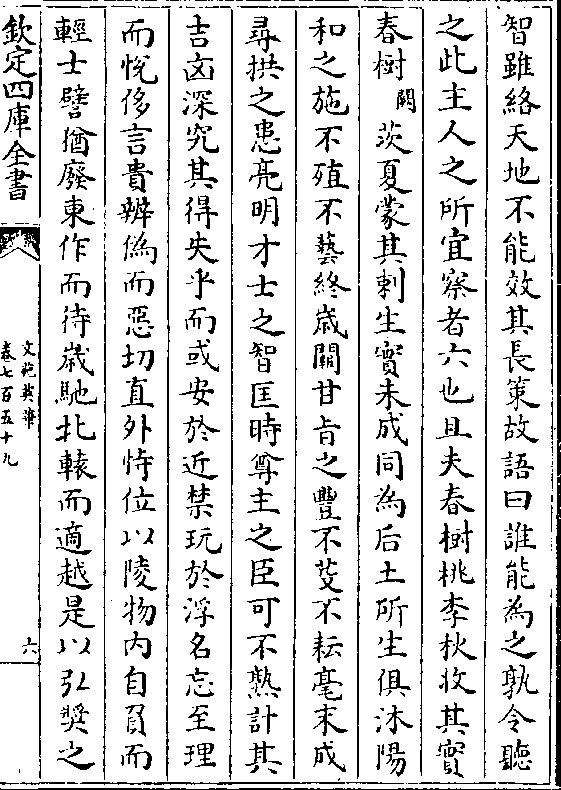 智雖絡天地不能效其長策故語曰誰能為之孰令聽
之此主人之所宜察者六也且夫春樹桃李秋收其實
春樹闕茨夏蒙其刺生實未成同為后土所生俱沐陽
和之施不殖不藝終歲闕甘旨之豐不芟不耘毫末成
尋拱之患亮明才士之智匡時尊主之臣可不熟計其
吉凶深究其得失乎而或安於近禁玩於浮名忘至理
而悅侈言貴辨偽而惡切直外恃位以陵物內自負而
輕士譬猶廢東作而待歲馳北轅而適越是以弘獎之
欽定四庫全書
文苑英華
卷七百五十九
六